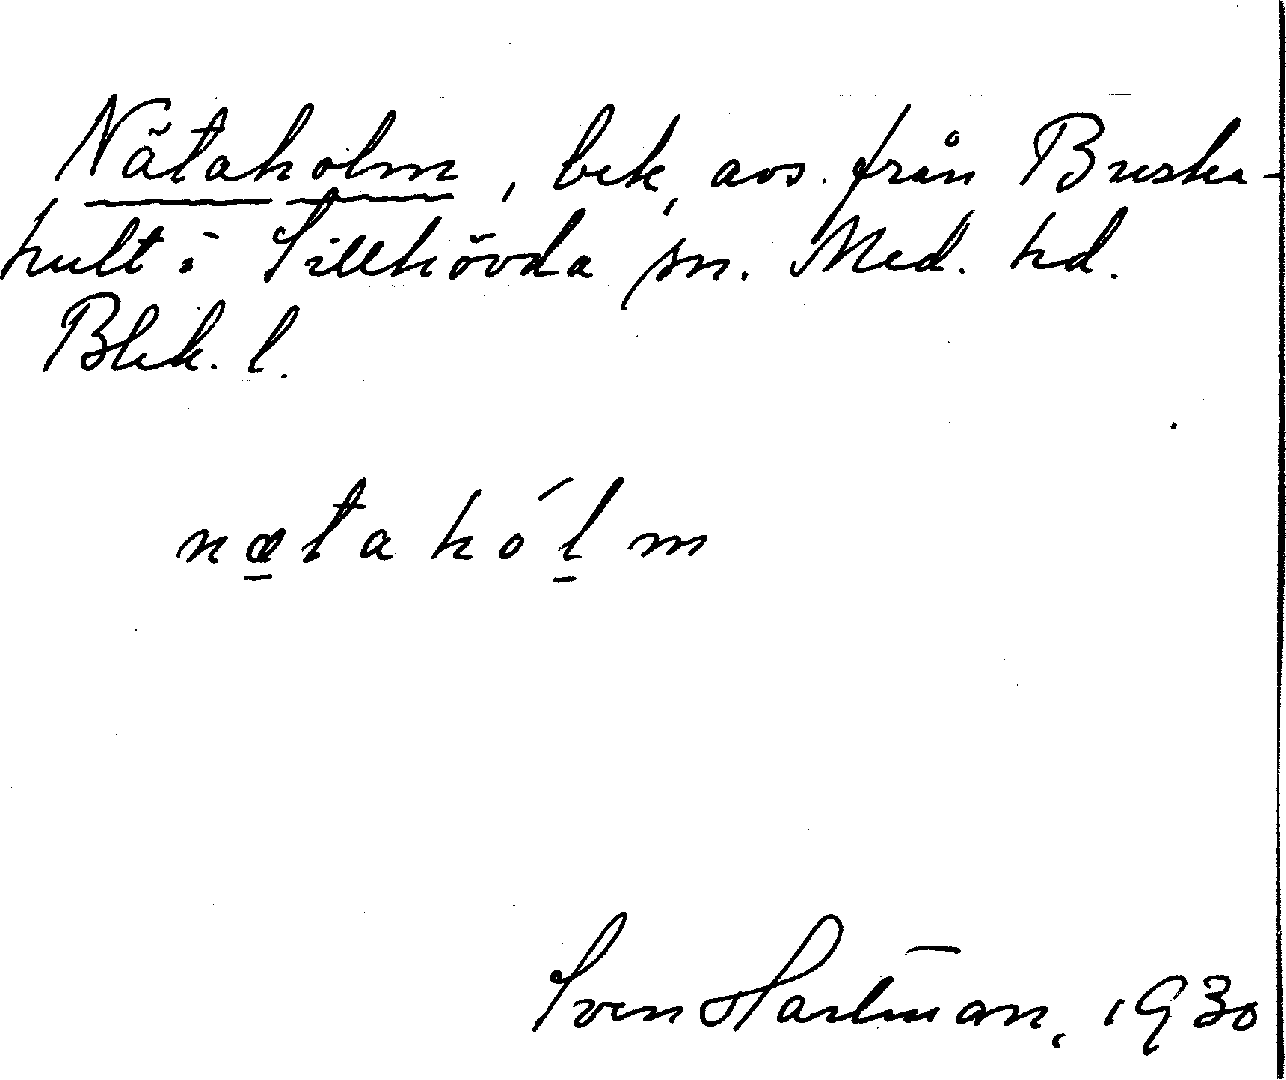 Nätaholm, bek, avs. från Buska-
hult i Sillhövda sn. Med. hd.
Blek. l.
nætahólm
Sven Hartman, 1930